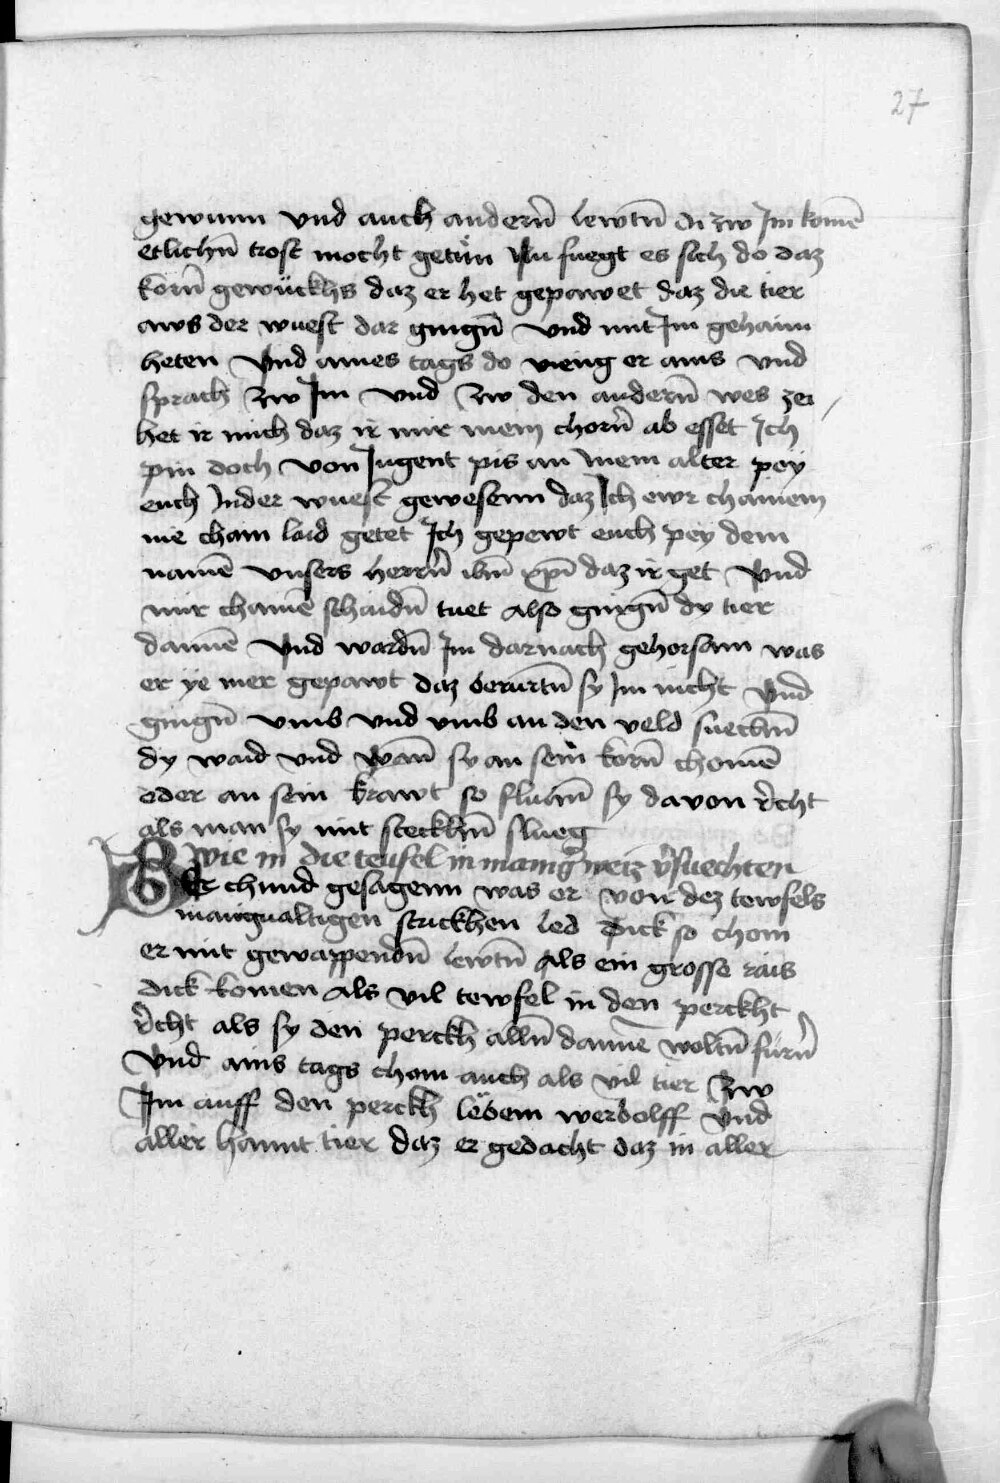 27
gewunn vnd auch anderñ lewtñ di zw Im komē
etlichñ trost mocht getün Nu fuegt es sich do daz
korñ gewückhs daz er het gepawet daz die tier
aws der wuest dar gingñ vnd mit Im gehaim
heten Vnd aines tags do vieng er ains vnd
sprach zw Im vnd zw den anderñ wes zei
het ir mich daz ir mir mein chorñ ab esset Ich
pin doch von Jugent pis an mein alter pey
euch Inder wuest gewesenn daz Ich ewr chainem
nie chain laid getet Ich gepewt euch pey dem
namē vnsers herrñ ihm̄ xp̄i daz ir get Vnd
mir chainē schaidñ tuet Also gingñ dy tier
dannē Vnd wardñ Im darnach gehorsam was
er ye mer gepawt daz berurtñ sy Im nicht Vnd
gingñ vmb vnd vmb an den veld suechtñ
dy waid vnd wañ sy an sein korñ chomē
oder an sein krawt so fluhñ sy davon r̃cht
als man sy mit steckhñ slueg
Wie in die teufel in manig weiz v̾suechten
Wer chund gesagenn was er von dez tewfels
manigualtigen strickhen led Dick so chom
er mit gewappendñ lewtñ Als ein grosse rais
Dick komen Als vil tewfel in den perckht
r̃cht als sy den perckh allñ dannē woltñ fürñ
Vnd ains tags chom auch als vil tier zw
Im auff den perckh lebem werbolff Vnd
aller hannt tier daz er gedacht daz in aller